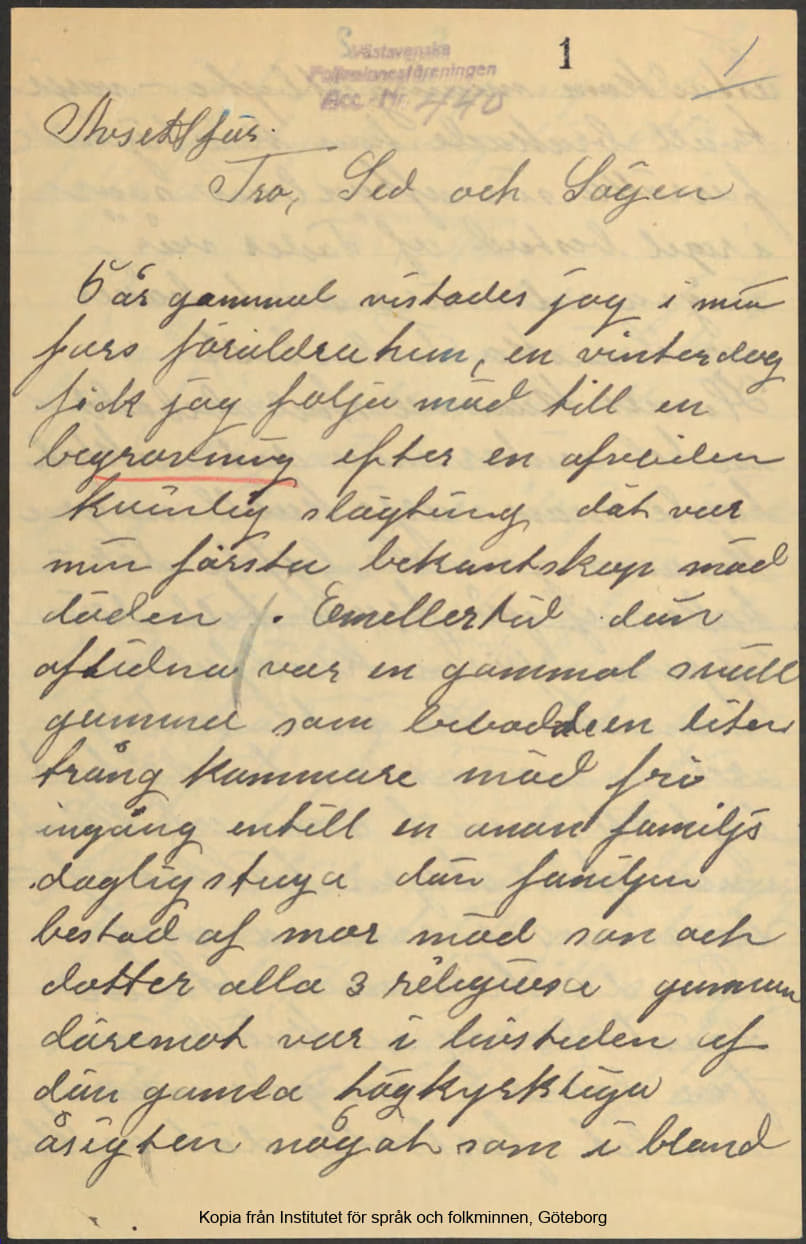 Västsvenska
Folkminnesföreningen
Acc. Nr. 440
1
1
Avsett för.
Tro, Sed och Sägen
6 år gammal vistades jag i min
fars föräldrahem, en vinterdag
fick jag följa mäd till en
begravning efter en afviden
kvinlig slägting dät var
min första bekantskap mäd
döden. Emellertid dän
aflidna var en gammal snäll
gumma som bebodde en liten
trång kammare mäd fri
ingång intill en anan familjs
daglig stuga dän familjen
bestod af mor mäd son och
dotter alla 3 religiösa gumman
däremot var i livstiden af
dän gamla högkyrkliga
åsigten något som i bland
Kopia från Institutet för språk och folkminnen, Göteborg